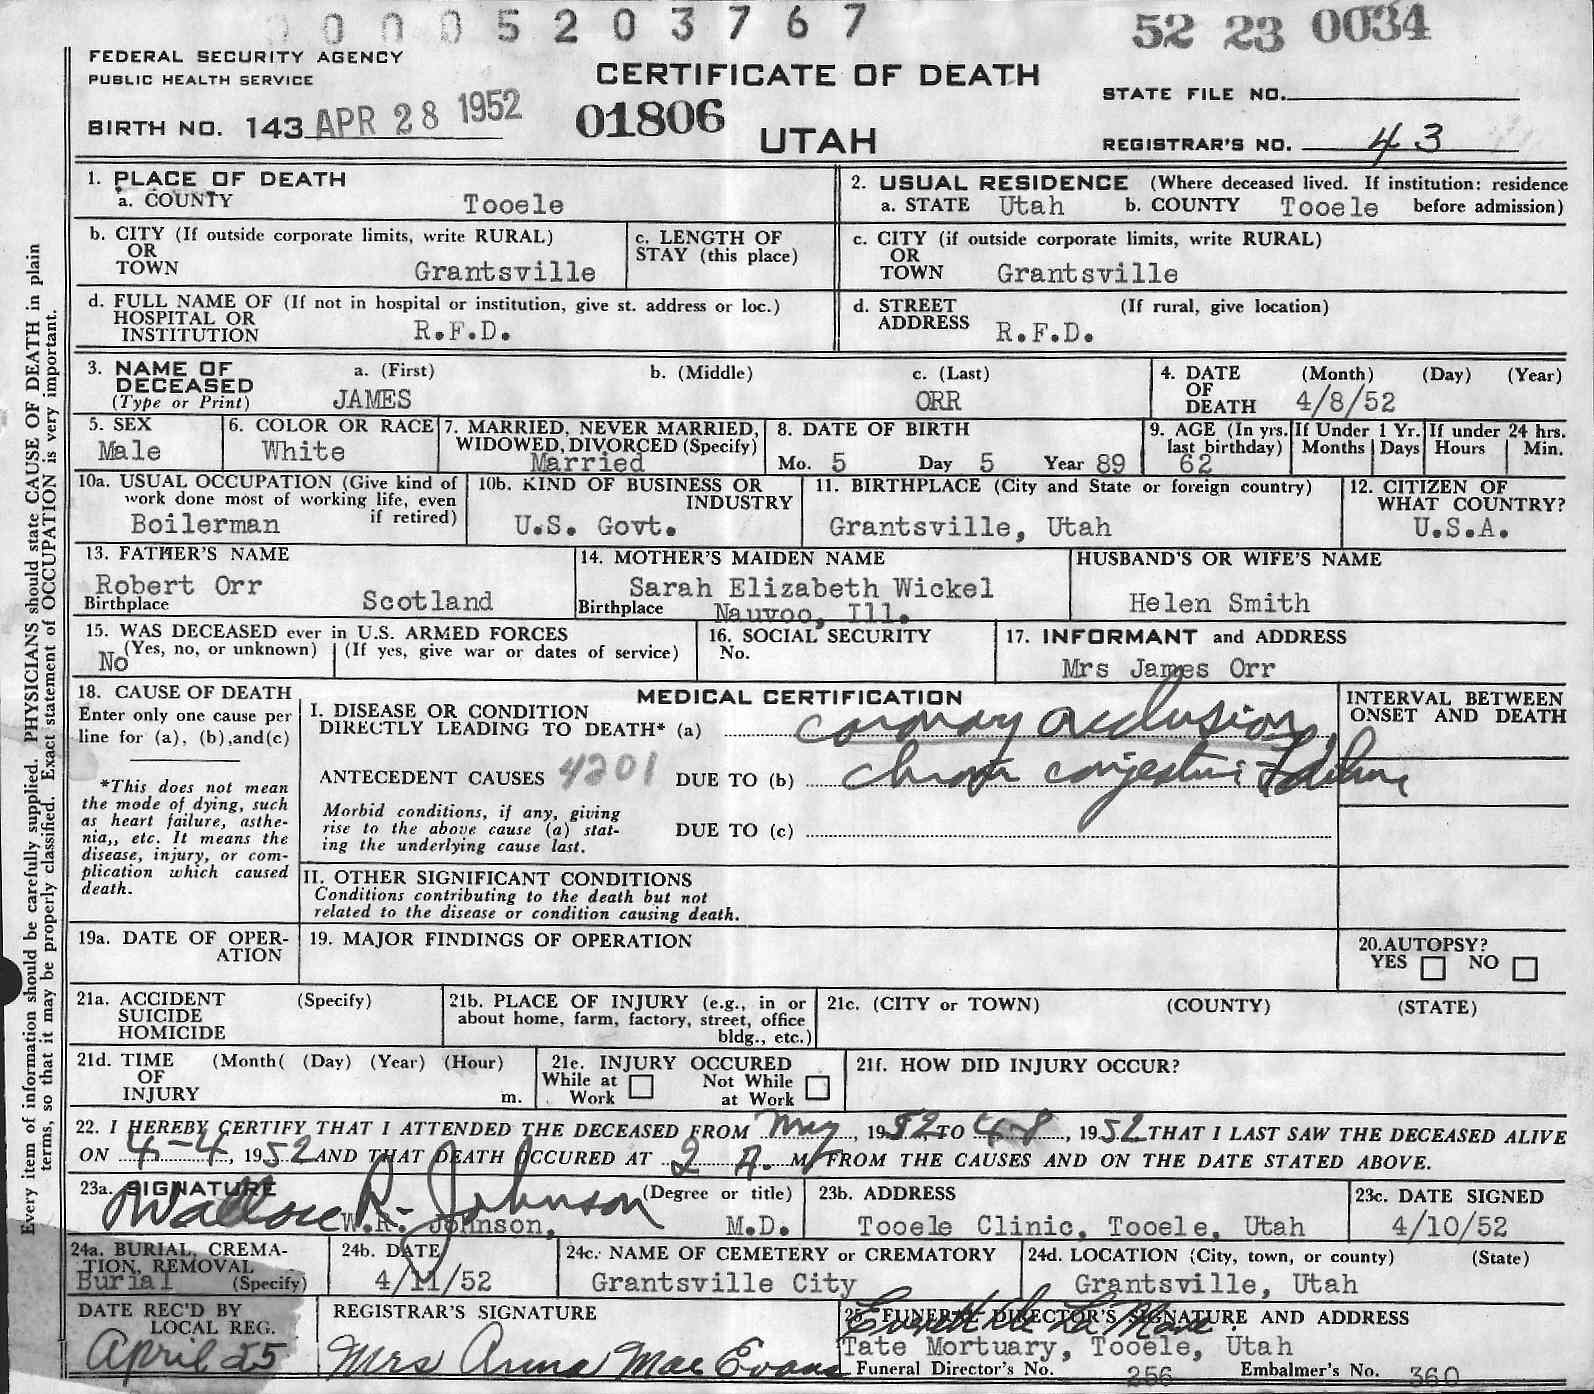 0 0 0 5 2 0 3 7 6 7
52 23 0034
FEDERAL SECURITY AGENCY
PUBLIC HEALTH SERVICE
CERTIFICATE OF DEATH
STATE FILE NO.
BIRTH NO. 143 APR 28 1952
01806
UTAH
REGISTRAR'S NO. 43
1. PLACE OF DEATH
a. COUNTY Tooele
2. USUAL RESIDENCE (Where deceased lived. If institution: residence
a. STATE Utah b. COUNTY Tooele before admission)
b. CITY (If outside corporate limits, write RURAL)
OR
TOWN Grantsville
c. LENGTH OF
STAY (this place)
c. CITY (if outside corporate limits, write RURAL)
OR
TOWN Grantsville
d. FULL NAME OF (If not in hospital or institution, give st. address or loc.)
HOSPITAL OR
INSTITUTION R.F.D.
d. STREET (If rural, give location)
ADDRESS R.F.D.
3. NAME OF DECEASED
(Type or Print)
a. (First) b. (Middle) c. (Last)
JAMES ORR
4. DATE OF DEATH (Month) (Day) (Year)
4/8/52
5. SEX
Male
6. COLOR OR RACE
White
7. MARRIED, NEVER MARRIED,
WIDOWED, DIVORCED (Specify)
Married
8. DATE OF BIRTH
Mo. 5 Day 5 Year 89
9. AGE (In yrs. last birthday)
62
If Under 1 Yr.
Months Days
If under 24 hrs.
Hours Min.
10a. USUAL OCCUPATION (Give kind of
work done most of working life, even
if retired)
Boilerman
10b. KIND OF BUSINESS OR
INDUSTRY
U.S. Govt.
11. BIRTHPLACE (City and State or foreign country)
Grantsville, Utah
12. CITIZEN OF
WHAT COUNTRY?
U.S.A.
13. FATHER'S NAME
Robert Orr
Birthplace Scotland
14. MOTHER'S MAIDEN NAME
Sarah Elizabeth Wickel
Birthplace Nauvoo, Ill.
HUSBAND'S OR WIFE'S NAME
Helen Smith
15. WAS DECEASED ever in U.S. ARMED FORCES
(Yes, no, or unknown) (If yes, give war or dates of service)
No
16. SOCIAL SECURITY
No.
17. INFORMANT and ADDRESS
Mrs James Orr
18. CAUSE OF DEATH
Enter only one cause per
line for (a), (b),and(c)
*This does not mean
the mode of dying, such
as heart failure, asthe-
nia,, etc. It means the
disease, injury, or com-
plication which caused
death.
MEDICAL CERTIFICATION
INTERVAL BETWEEN
ONSET AND DEATH
I. DISEASE OR CONDITION
DIRECTLY LEADING TO DEATH* (a) coronary occlusion
ANTECEDENT CAUSES 4201 DUE TO (b) chronic congestive Failure
Morbid conditions, if any, giving
rise to the above cause (a) stat-
ing the underlying cause last.
DUE TO (c)
II. OTHER SIGNIFICANT CONDITIONS
Conditions contributing to the death but not
related to the disease or condition causing death.
19a. DATE OF OPER-
ATION
19. MAJOR FINDINGS OF OPERATION
20.AUTOPSY?
YES NO
21a. ACCIDENT (Specify)
SUICIDE
HOMICIDE
21b. PLACE OF INJURY (e.g., in or
about home, farm, factory, street, office
bldg., etc.)
21c. (CITY or TOWN) (COUNTY) (STATE)
21d. TIME (Month( (Day) (Year) (Hour)
OF
INJURY m.
21e. INJURY OCCURED
While at Work Not While at Work
21f. HOW DID INJURY OCCUR?
22. I HEREBY CERTIFY THAT I ATTENDED THE DECEASED FROM May, 1952 TO 4-8, 1952 THAT I LAST SAW THE DECEASED ALIVE
ON 4-4, 1952 AND THAT DEATH OCCURED AT 2 A. M. FROM THE CAUSES AND ON THE DATE STATED ABOVE.
23a. SIGNATURE (Degree or title)
Wallace R. Johnson
W.R. Johnson, M.D.
23b. ADDRESS
Tooele Clinic, Tooele, Utah
23c. DATE SIGNED
4/10/52
24a. BURIAL, CREMA-
TION, REMOVAL
Burial (Specify)
24b. DATE
4/11/52
24c. NAME OF CEMETERY or CREMATORY
Grantsville City
24d. LOCATION (City, town, or county) (State)
Grantsville, Utah
DATE REC'D BY
LOCAL REG.
April 25
REGISTRAR'S SIGNATURE
Mrs Anna Mae Evans
25. FUNERAL DIRECTOR'S SIGNATURE AND ADDRESS
Tate Mortuary, Tooele, Utah
Funeral Director's No. 256 Embalmer's No. 360
Every item of information should be carefully supplied. PHYSICIANS should state CAUSE OF DEATH in plain
terms, so that it may be properly classified. Exact statement of OCCUPATION is very important.